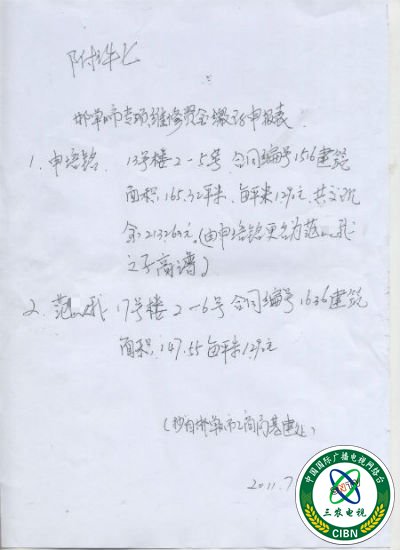 附件七
邯郸市专项维修资金缴存申报表
1. 申培铭 13号楼2-5号 合同编号1516建筑
面积:165.32平米. 每平米129元. 共交现
金:21326元.(由申培铭更名为范 我
之子高 )
2. 范 我 17号楼2-6号 合同编号1636建筑
面积:147.55每平米129元
(抄自邯郸市工商局基建处)
2011.7
中国国际广播电视网络台
三农电视
CIBN